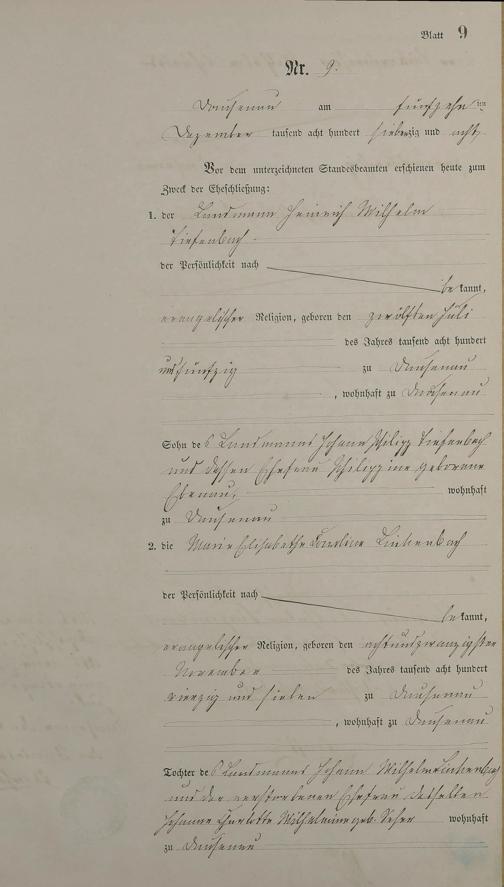 Blatt 9
Nr. 9.
Dausenau am fünfzehn ten
Dezember tausend acht hundert siebenzig und acht
Vor dem unterzeichneten Standesbeamten erschienen heute zum
Zweck der Eheschließung:
1. der Landmann Heinrich Wilhelm
Tiefenbach
der Persönlichkeit nach
be kannt,
evangelischer Religion, geboren den zwölften Juli
des Jahres tausend acht hundert
und fünfzig zu Dausenau
, wohnhaft zu Dausenau
Sohn des Landmanns Johann Philipp Tiefenbach
und dessen Ehefrau Philippine geborene
wohnhaft
zu Dausenau
2. die Marie Elisabethe Karoline Linkenbach
der Persönlichkeit nach
be kannt,
evangelischer Religion, geboren den achtundzwanzigsten
November des Jahres tausend acht hundert
vierzig und sieben zu Dausenau
, wohnhaft zu Dausenau
Tochter des Landmanns Johann Wilhelm Linkenbach
und der verstorbenen Ehefrau desselben
Johanne Charlotte Wilhelmine geb. wohnhaft
zu Dausenau